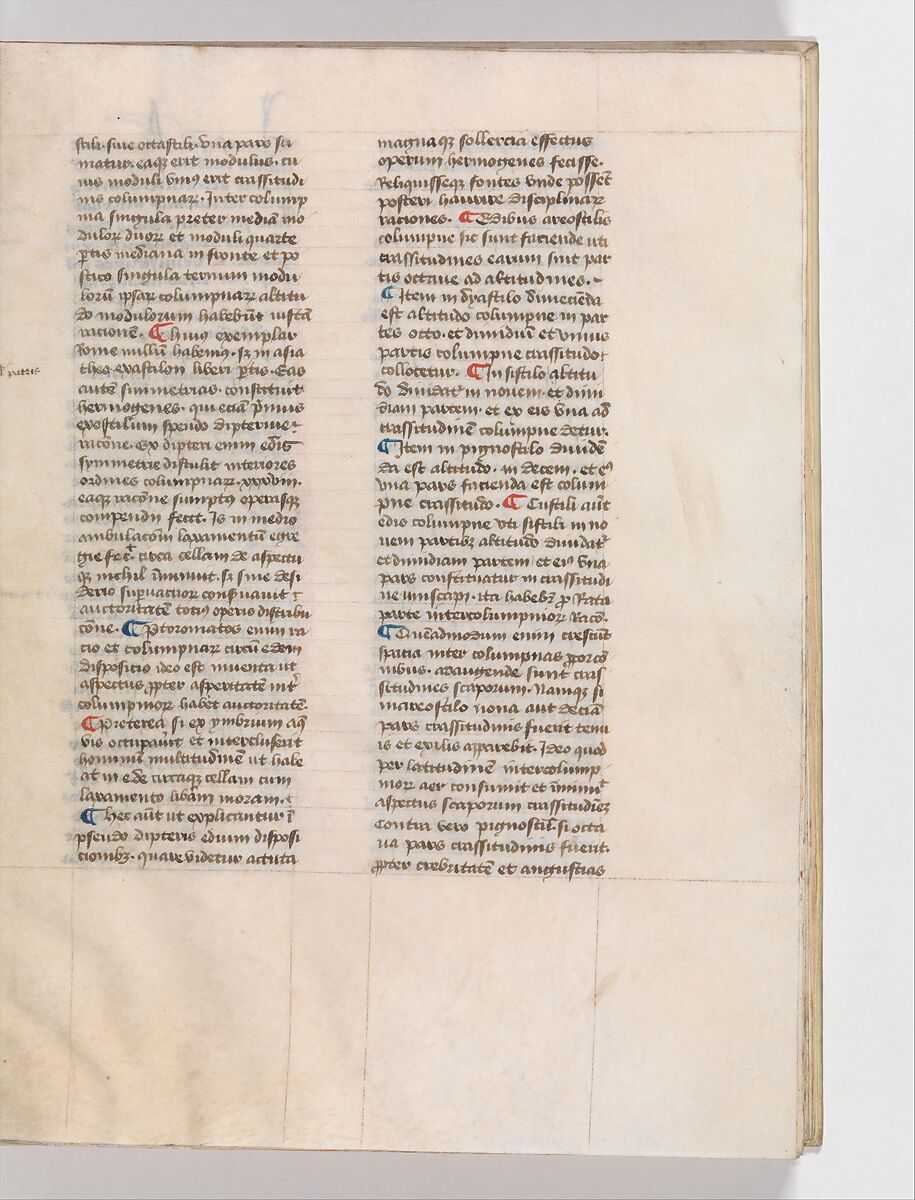 stili · siue octastili · vna pars su
matur · eaqꝫ erit modulus · cu
ius moduli vniꝰ erit crassitudi
nis columpnaꝝ · Inter columpp
nia singula preter mediā mo
duloꝝ duoꝝ et moduli quarte
ꝑtis mediana in fronte et po
stico singula ternum modu
lorū ipsaꝝ columpnaꝝ altitu
do modulorum habebūt iustā
racionē · ¶ huiꝰ exemplar
Rome nullū habemꝰ · sꝫ in asia
theo exastilon liberi ꝑtis · Eas
autē simmetrias · constituit
hermogenes · qui eciā p̄mus
exostilum pseudo dipterive
racōne · Ex dipteri enim edis
symmetrie distulit interiores
ordines columpnaꝝ · xxxviii ·
eaqꝫ racōne sumptꝰ operasqꝫ
compendii fecit · Is in medio
ambulacōni laxamentū egre
gie fec̄ circa cellam de aspectu
qꝫ nichil īminuit · sꝫ sine desi
derio suꝑuacuoꝝ conseruauit
auctoritatē totiꝰ operis distribu
cōne · ¶ Ptoromatos enim ra
cio et columpnaꝝ circū edem
disposicio ideo est inuenta ut
aspectus ꝓpter asperitatē int̄
columpnioꝝ habet auctoritatē ·
¶ Preterea si ex ymbrium aq̄
vis occupauīt et intercluserit
hominū multitudinē ut habe
at in ede circaqꝫ cellam cum
laxamento libām moram ·
¶ hec aūt ut explicantur ī
pseudo dipteris edium disposi
cionibꝫ · quare videtur acuta
magnaqꝫ sollercia effectus
operum hermogenes fecisse ·
Reliquisseqꝫ fontes vnde possēt
posteri haurire disciplinaꝝ
raciones · ¶ Edibus areostilis
columpne sic sunt faciende uti
crassitudines earum sint par
tis octaue ad altitudines ·
¶ Item in dyastilo dimecienda
est altitudo columpne in par
tes octo · et dimidiū et vnius
partis columpne crassitudo
collocetur · ¶ In sistilo altitu
do diuidat̄ in nouem · et dimi
diam partem · et ex eis vna ad
crassitudinē columpne detur ·
¶ Item in pignostilo diuiden
da est altitudo · in decem · et eiꝰ
vna pars facienda est colum
pne crassitudo · ¶ Eustili aūt
edis columpne vti sistili in no
uem partibꝫ altitudo diuidat̄
et dimidiam partem et eiꝰ vna
pars constituatur in crassitudi
ne imi scapi · ita habebꝫ ꝓ rata
parte intercolumpnioꝝ racō ·
¶ Quēadmodum enim crescūt
spacia inter columpnas ꝓporcō
nibus · adaugende sunt cras
situdines scaporum · Namqꝫ si
in areostilo nona aut deciā
pars crassitudinis fuerit tenu
is et exilis apparebit · Ideo quod
per latitudinē intercolump
nioꝝ aer consumit et īminuit
aspectus scaporum crassitudinē
Contra vero pignostil · si octa
ua pars crassitudinis fuerit ·
ꝓpter crebritatē et angustias